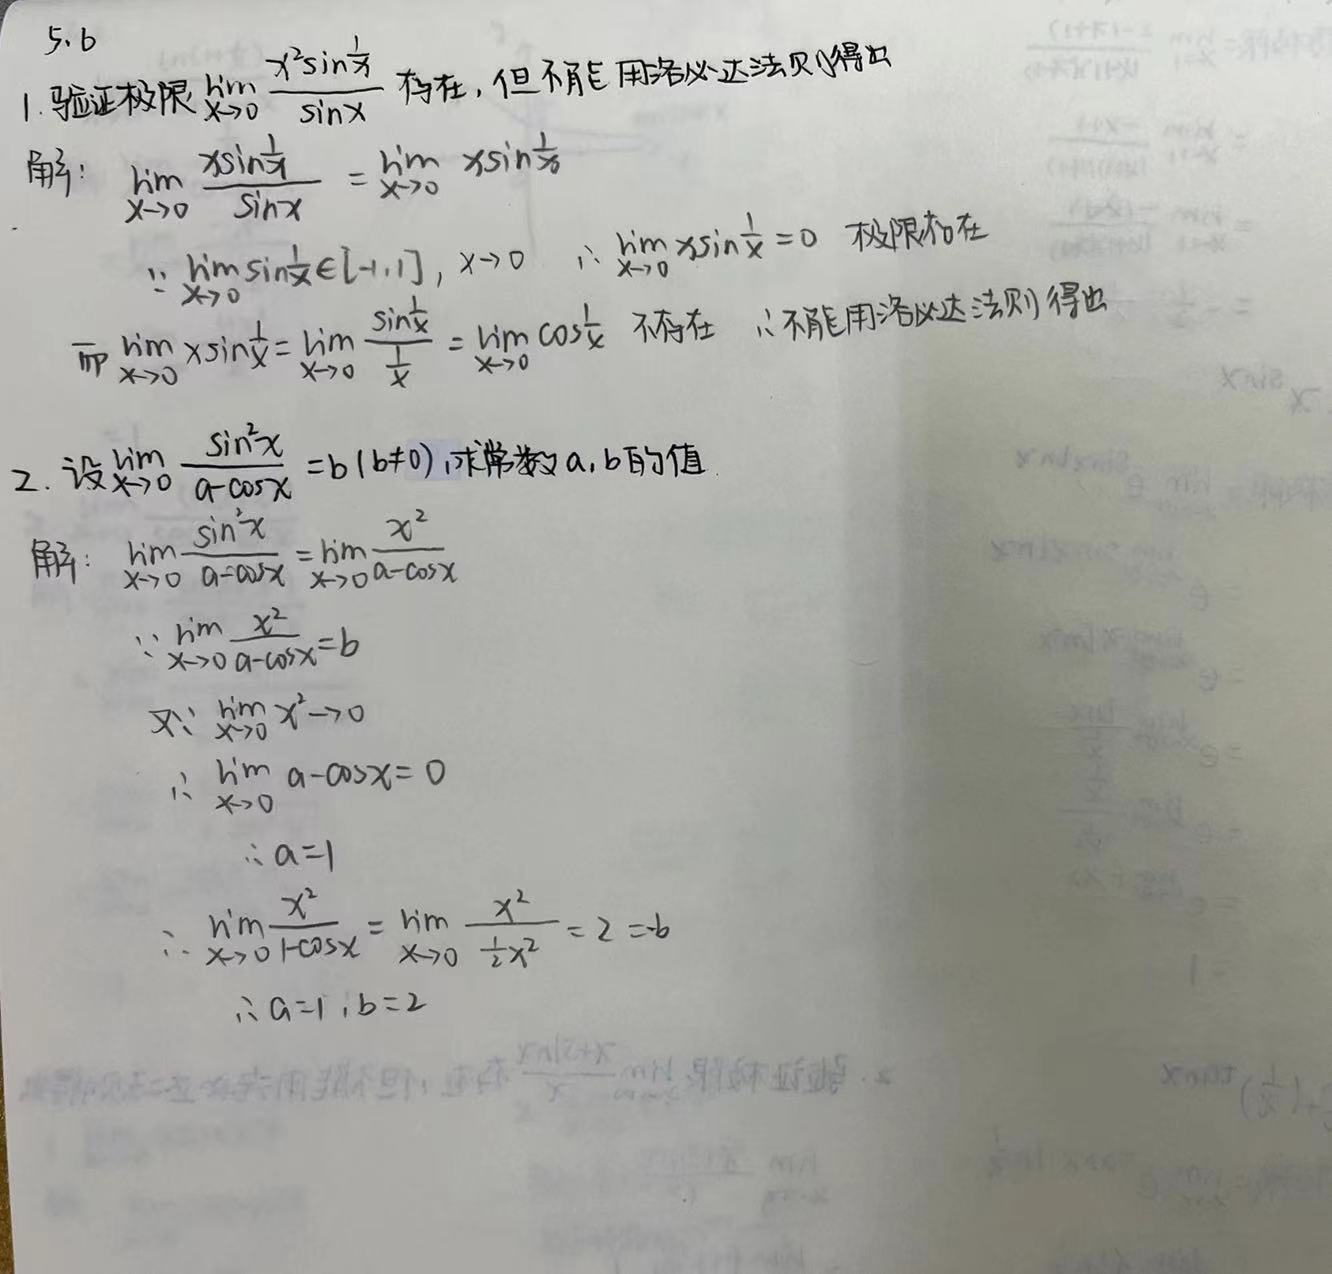 5.6
1. 验证极限 lim x→0 x²sin 1/x / sinx 存在，但不能用洛必达法则得出
解： lim x→0 xsin 1/x / sinx = lim x→0 xsin 1/x
∵ lim x→0 sin 1/x ∈ [-1,1]，x→0 ∴ lim x→0 xsin 1/x = 0 极限存在
而 lim x→0 xsin 1/x = lim x→0 sin 1/x / 1/x = lim x→0 cos 1/x 不存在 ∴不能用洛必达法则得出
2. 设 lim x→0 sin²x / a-cosx = b (b≠0)，求常数a，b的值.
解： lim x→0 sin²x / a-cosx = lim x→0 x² / a-cosx
∵ lim x→0 x² / a-cosx = b
又∵ lim x→0 x²→0
∴ lim x→0 a-cosx = 0
∴ a=1
∴ lim x→0 x² / 1-cosx = lim x→0 x² / ½x² = 2 = b
∴ a=1，b=2